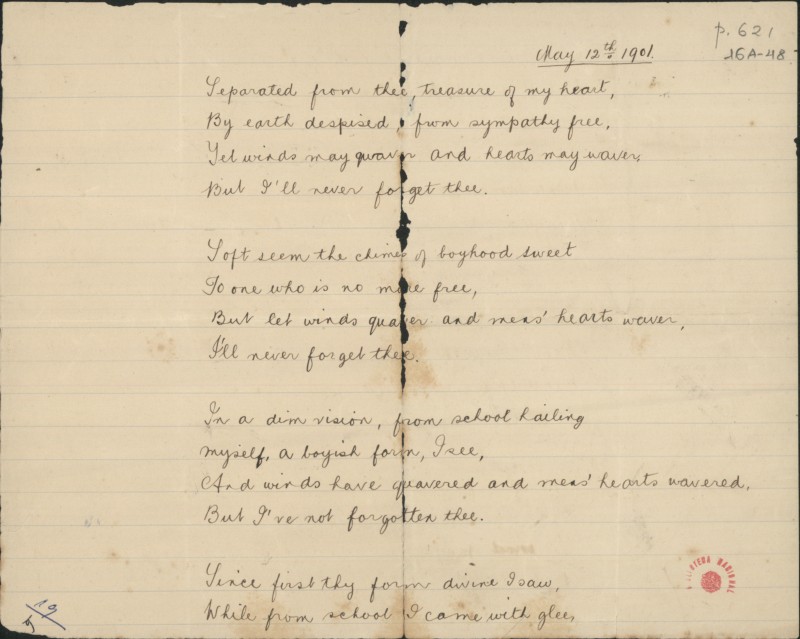 p. 621
16A-48
May 12th 1901.
Separated from thee, treasure of my heart,
By earth despised, from sympathy free,
Yet winds may quaver and hearts may waver,
But I'll never forget thee.
Soft seem the chimes of boyhood sweet
To one who is no more free,
But let winds quaver and mens' hearts waver,
I'll never forget thee.
In a dim vision, from school hailing
myself, a boyish form, I see,
And winds have quavered and mens' hearts wavered,
But I've not forgotten thee.
Since first thy form divine I saw,
While from school I came with glee,
BIBLIOTECA NACIONAL
19